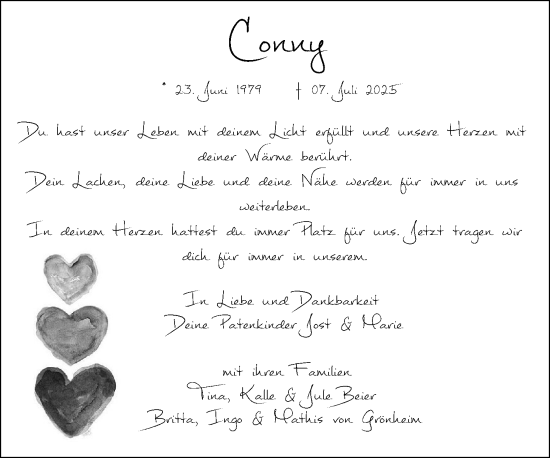 Conny
* 23. Juni 1979 † 07. Juli 2025
Du hast unser Leben mit deinem Licht erfüllt und unsere Herzen mit
deiner Wärme berührt.
Dein Lachen, deine Liebe und deine Nähe werden für immer in uns
weiterleben
In deinem Herzen hattest du immer Platz für uns. Jetzt tragen wir
dich für immer in unserem.
In Liebe und Dankbarkeit
Deine Patenkinder Jost & Marie
mit ihren Familien
Tina, Kalle & Jule Beier
Britta, Ingo & Mathis von Grönheim